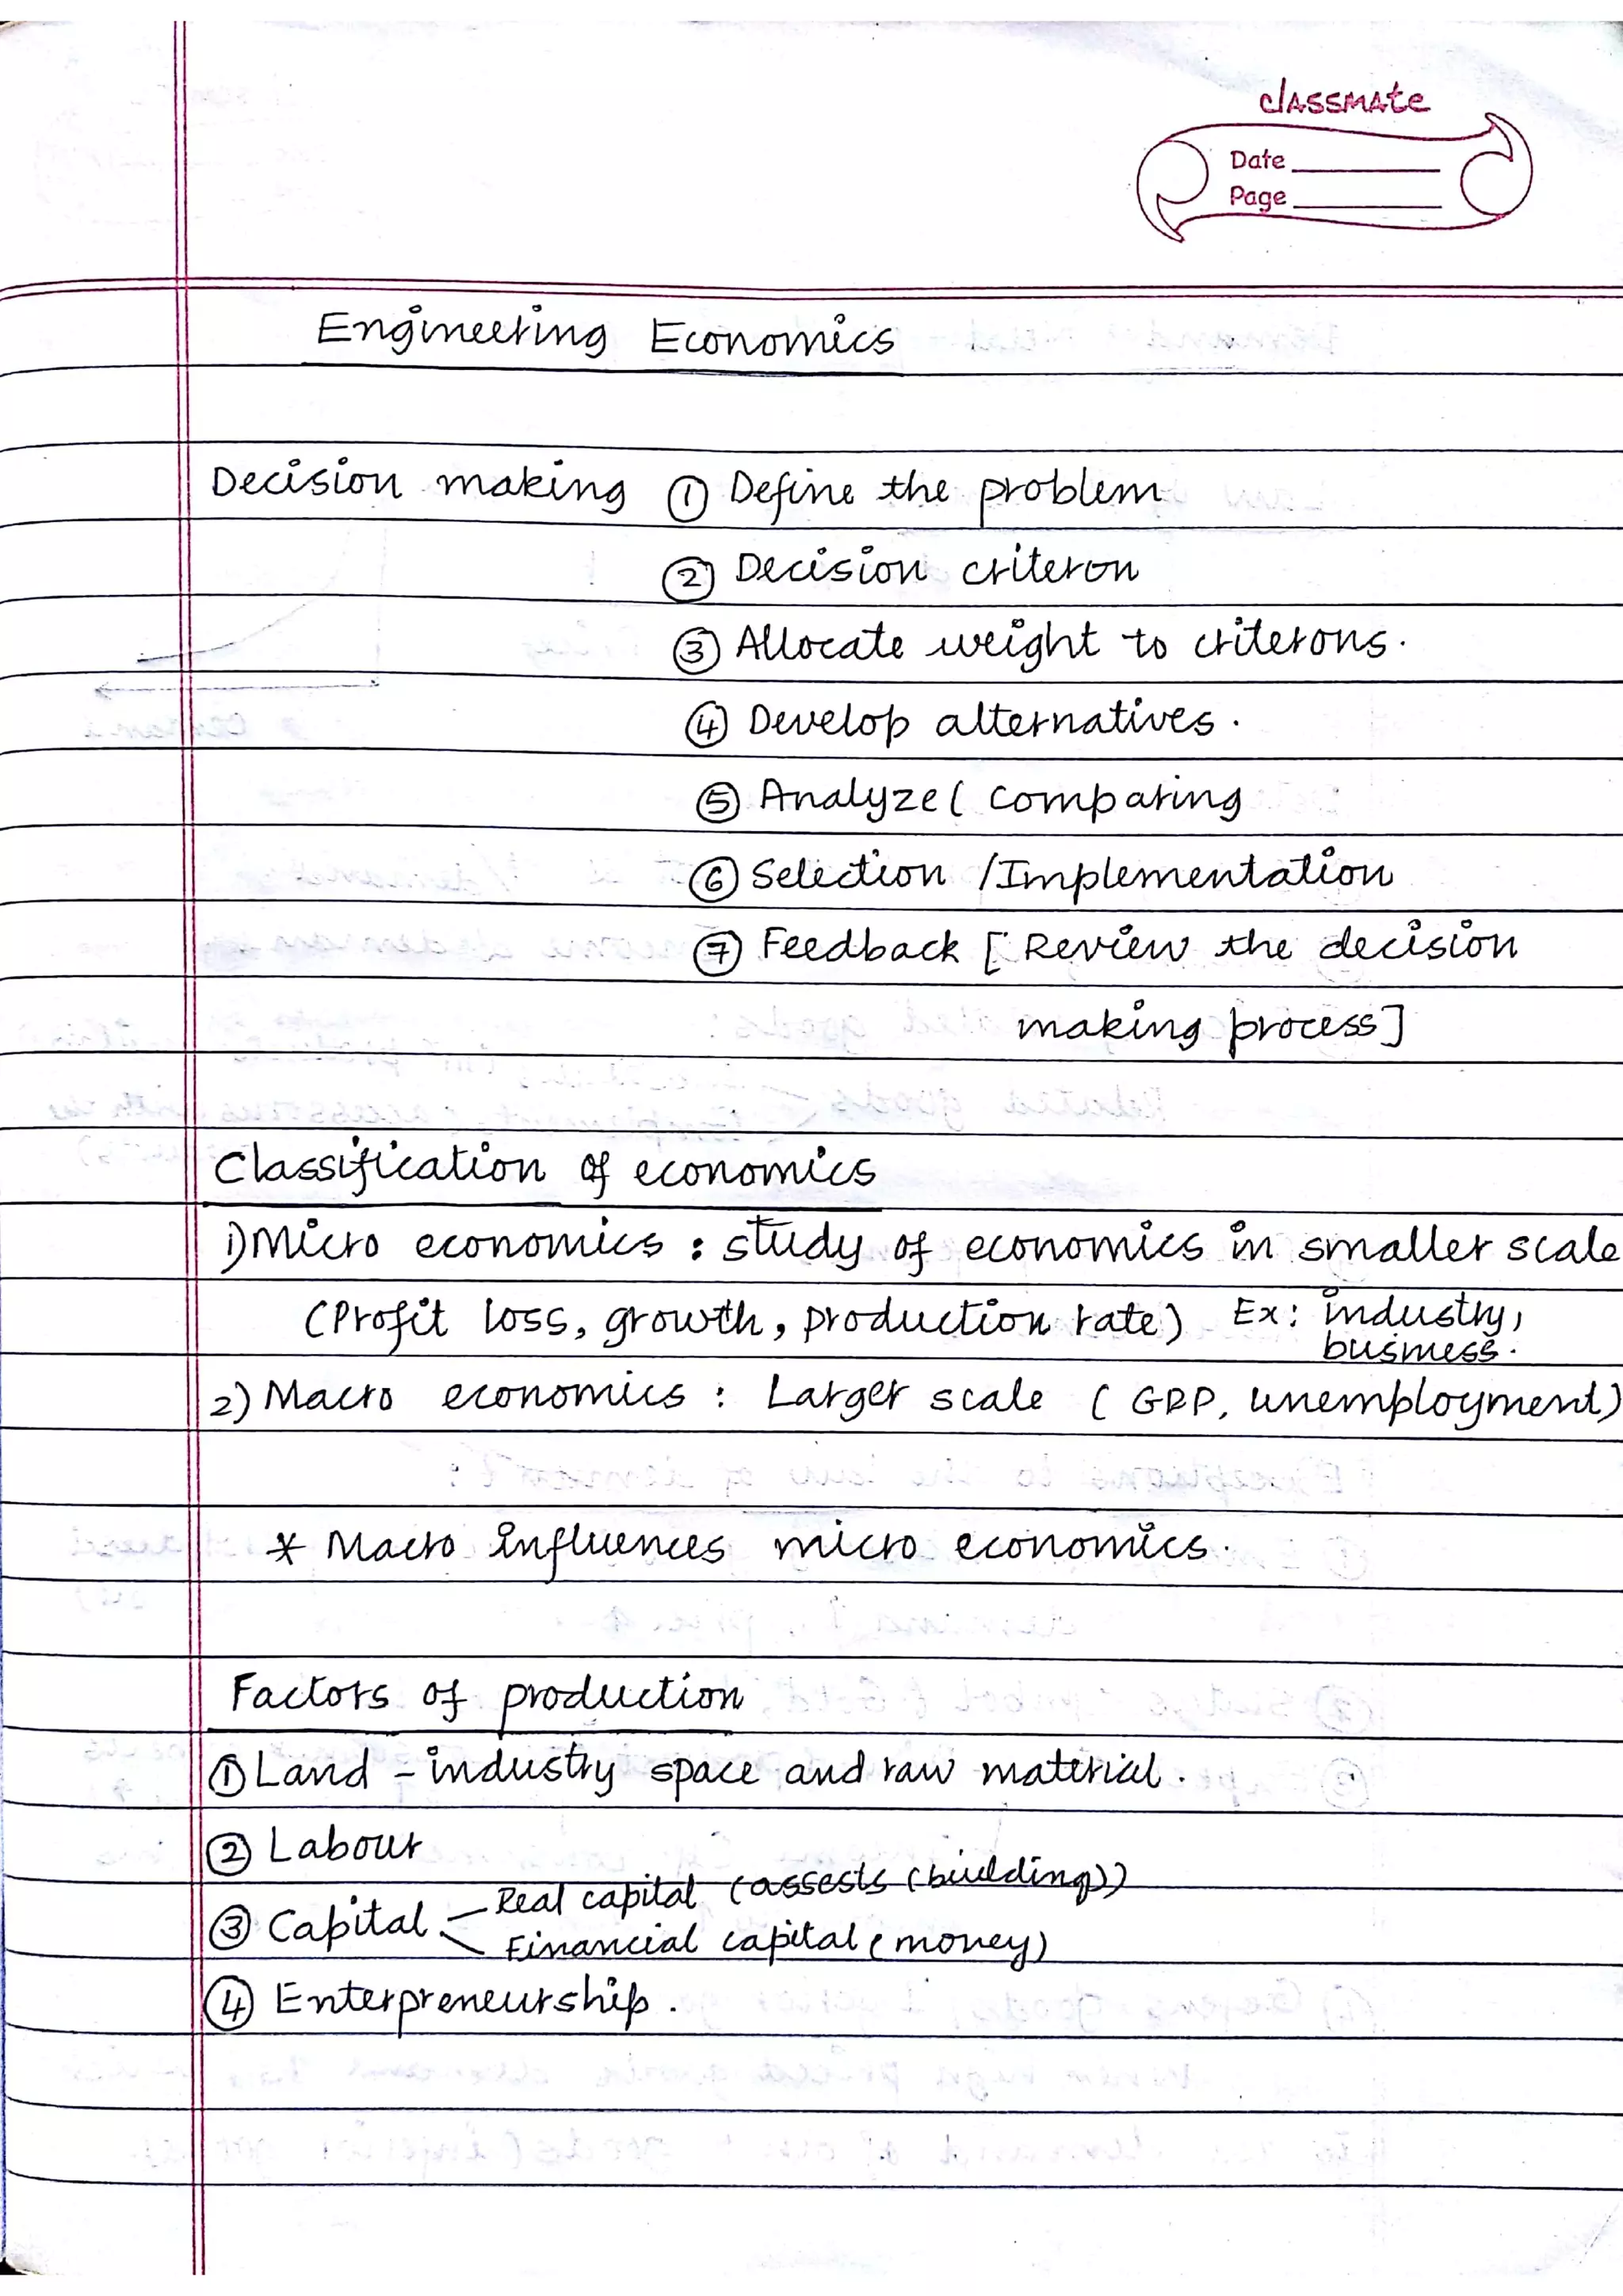 classmate
Date
Page
Engineering Economics
Decision making ① Define the problem
② Decision criteron
③ Allocate weight to criterons.
④ Develop alternatives.
⑤ Analyze ( comparing
⑥ Selection / Implementation
⑦ Feedback [ Review the decision
making process ]
Classification of economics
1) Micro economics : study of economics in smaller scale
(Profit loss, growth, production rate) Ex: industry,
business.
2) Macro economics : Larger scale ( GDP, unemployment)
* Macro influences micro economics.
Factors of production
① Land - industry space and raw material.
② Labour
Real capital (assests (building))
③ Capital
Financial capital (money)
④ Enterpreneurship.